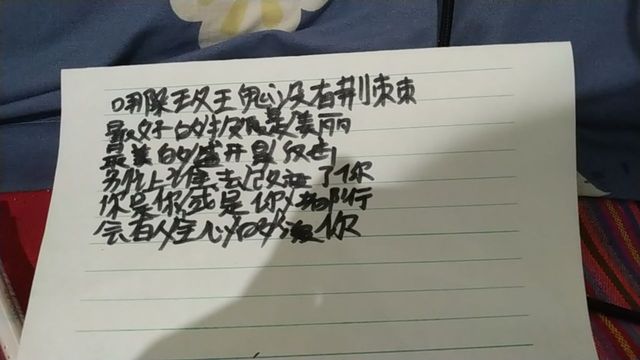 哪朵玫瑰没有荆棘
最好的报复是美丽
最美的盛开是反击
别让谁去改变了你
你是你或是你都行
会有人全心的爱你